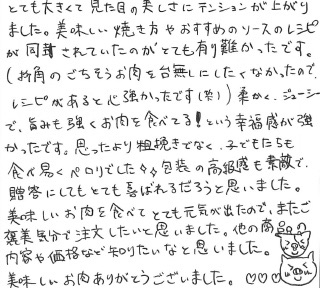 とても大きくて見た目の美しさにテンションが上がり
ました。美味しい焼き方やおすすめのソースのレシピ
が同封されていたのがとても有り難かったです。
(折角のごちそうお肉を台無しにしたくなかったので、
レシピがあると心強かったです(笑))柔かく、ジューシー
で、旨みも強くお肉を食べてる!という幸福感が強
かったです。思ったより粗挽きでなく、子どもたちも
食べ易くペロリでした 包装の高級感も素敵で、
贈答にしてもとても喜ばれるだろうと思いました。
美味しいお肉を食べてとても元気が出たので、またご
褒美気分で注文したいと思いました。他の商品の
内容や価格など知りたいなと思いました。
美味しいお肉ありがとうございました。♡♡♡